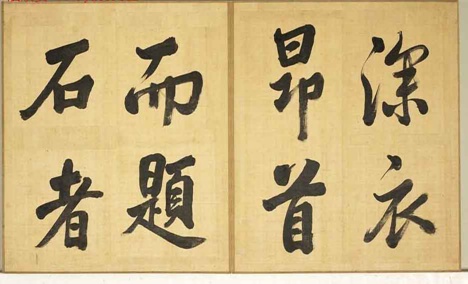 深衣
昂首
而題
石者